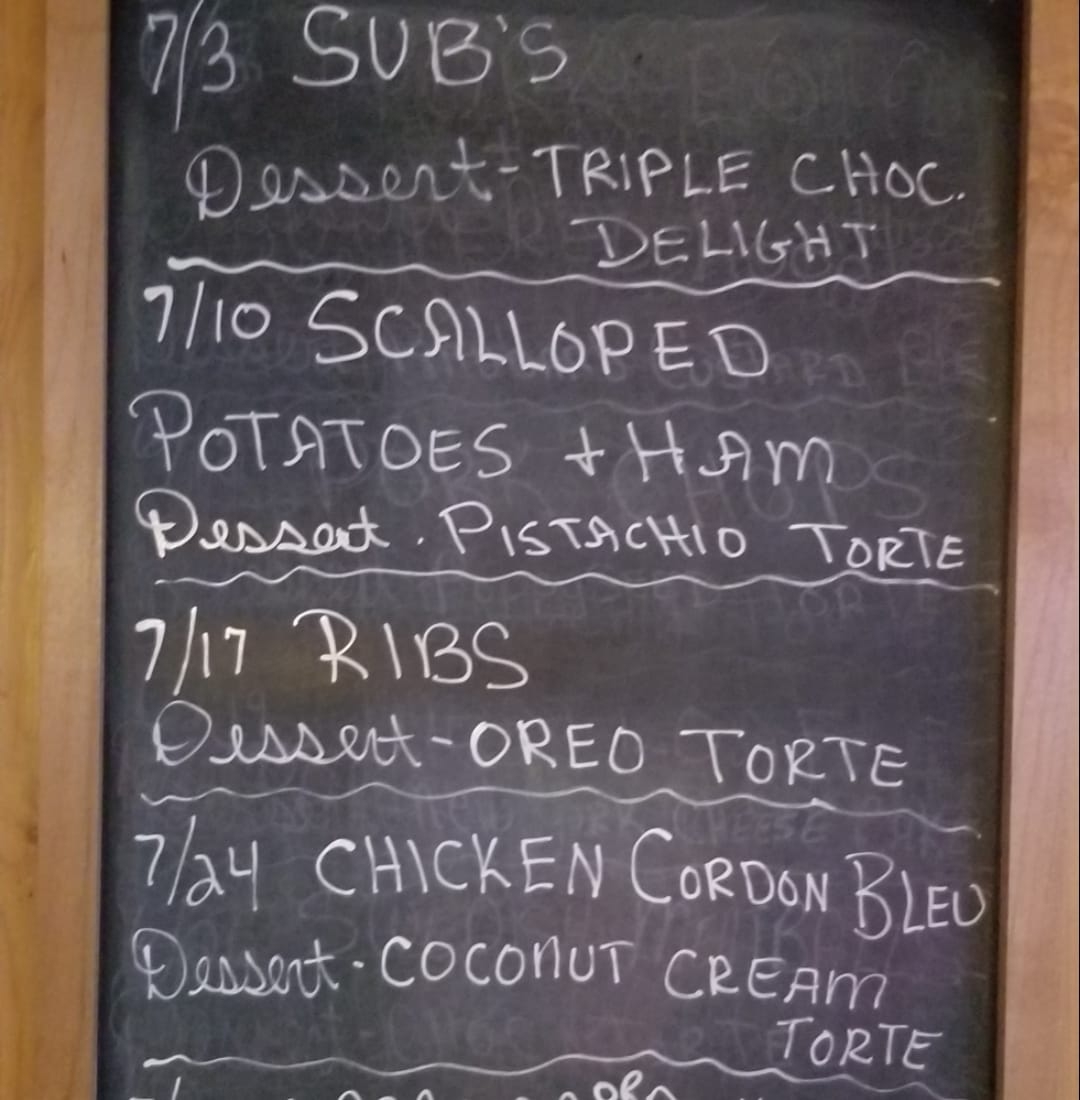 7/3 SUB'S
Dessert - TRIPLE CHOC.
DELIGHT
7/10 SCALLOPED
POTATOES + HAM
Dessert . PISTACHIO TORTE
7/17 RIBS
Dessert - OREO TORTE
7/24 CHICKEN CORDON BLEU
Dessert - COCONUT CREAM
TORTE